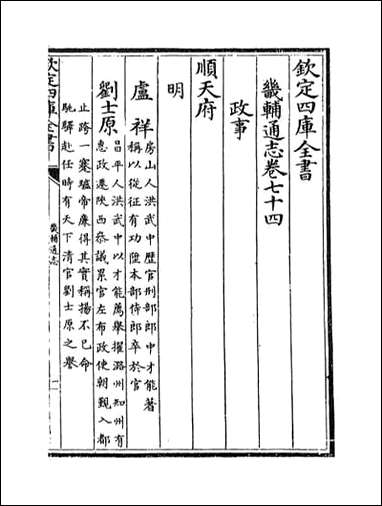 欽定四庫全書
畿輔通志卷七十四
政事
順天府
明
盧祥房山人洪武中歷官刑部郎中才能著
稱以從征有功陞本部侍郎卒於官
劉士原昌平人洪武中以才能薦舉擢潞州知州有
惠政遷陝西參議累官左布政使朝覲入都
止跨一蹇驢帝廉得其實稱揚不已命
馳驛赴任時有天下清官劉士原之譽
欽定四庫全書
畿輔通志